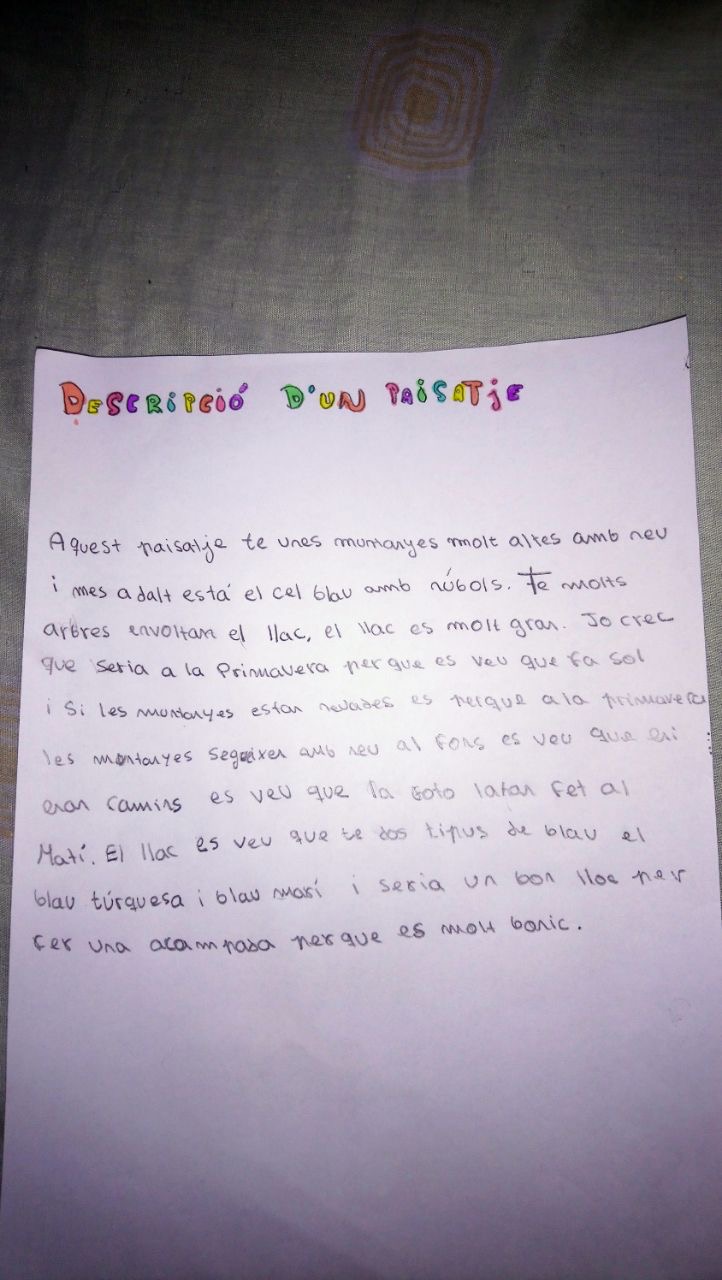 DESCRIPCIÓ D'UN PAISATJE
Aquest paisatje te unes muntanyes molt altes amb neu
i mes adalt está el cel blau amb núbols. Te molts
arbres envoltan el llac, el llac es molt gran. Jo crec
que seria a la Primavera per que es veu que fa sol
i si les muntanyes estan nevades es perque a la primavera
les montanyes segueixen amb neu al fons es veu que
eran camins es veu que la foto latan fet al
Matí. El llac es veu que te dos tipus de blau el
blau túrquesa i blau marí i seria un bon lloc per
fer una acampada per que es molt bonic.